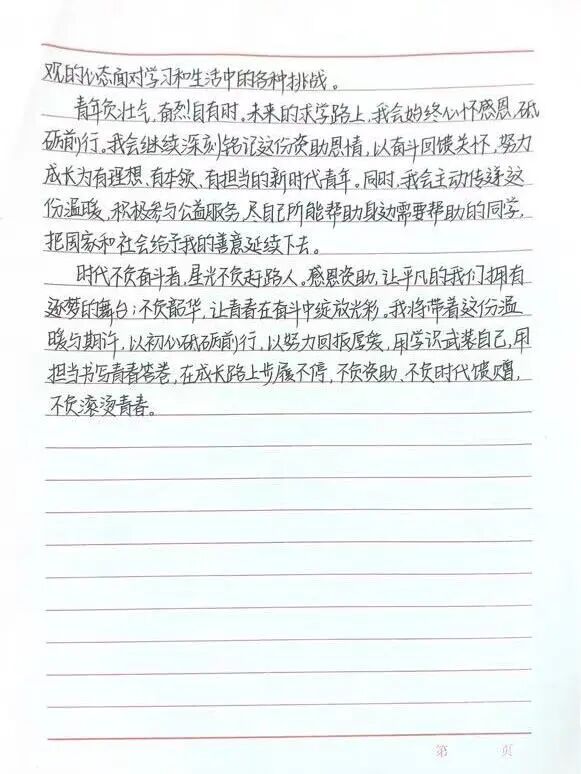 观的心态面对学习和生活中的各种挑战。
青年负壮气,奋烈自有时。未来的求学路上,我会始终心怀感恩,砥
砺前行。我会继续深刻铭记这份资助恩情,以奋斗回馈关怀,努力
成长为有理想、有本领、有担当的新时代青年。同时,我会主动传递这
份温暖,积极参与公益服务,尽自己所能帮助身边需要帮助的同学,
把国家和社会给予我的善意延续下去。
时代不负奋斗者,星光不负赶路人。感恩资助,让平凡的我们拥有
逐梦的舞台;不负韶华,让青春在奋斗中绽放光彩。我将带着这份温
暖与期许,以初心砥砺前行,以努力回报厚爱,用学识武装自己,用
担当书写青春答卷,在成长路上步履不停,不负资助、不负时代馈赠,
不负滚烫青春。
第 页